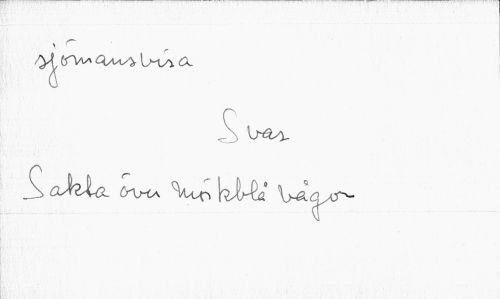 sjömansvisa
Svas
Sakta över mörkblå vågor